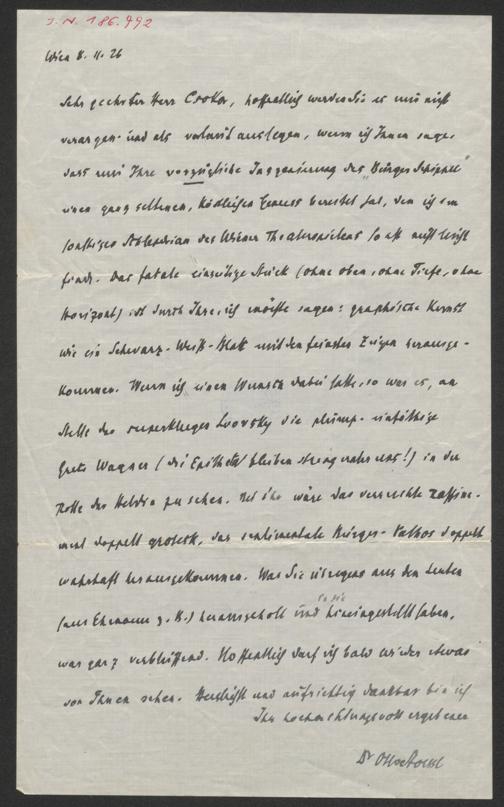 I. N. 186.992
Wien 8. 11. 26
Sehr geehrter Herr Csokor, hoffentlich werden Sie es mir nicht
verargen und als auslegen, wenn ich Ihnen sage,
dass mir Ihre vorzügliche Inszenierung des "Bürger Schippel"
einen ganz seltenen, köstlichen Genuss bereitet hat, den ich am
sonstigen des Wiener Theaterspielens so oft nicht leicht
finde. Das fatale einseitige Stück (ohne oben, ohne Tiefe, ohne
Horizont) ist durch Ihre, ich möchte sagen: graphische Kunst
wie ein Schwarz-Weiß-Blatt mit den feinsten Zügen herausge-
kommen. Wenn ich einen Wunsch dabei hatte, so war es, an
Stelle der superklugen Lvovsky die plump-einfältige
Grete Wagner (die Epitheta bleiben streng unter uns!) in der
Rolle der Heldin zu sehen. Bei ihr wäre das verruchte Raffine-
ment doppelt grotesk, das sentimentale Bürger-Pathos doppelt
wahrhaft herausgekommen. Was Sie übrigens aus den Leuten
(aus z. B.) herausgeholt und
in sie
hineingestellt haben,
war ganz verblüffend. Hoffentlich darf ich bald wieder etwas
von Ihnen sehen. Herzlichst und aufrichtig dankbar bin ich
Ihr hochachtungsvoll ergebener
Dr Otto Stoessl